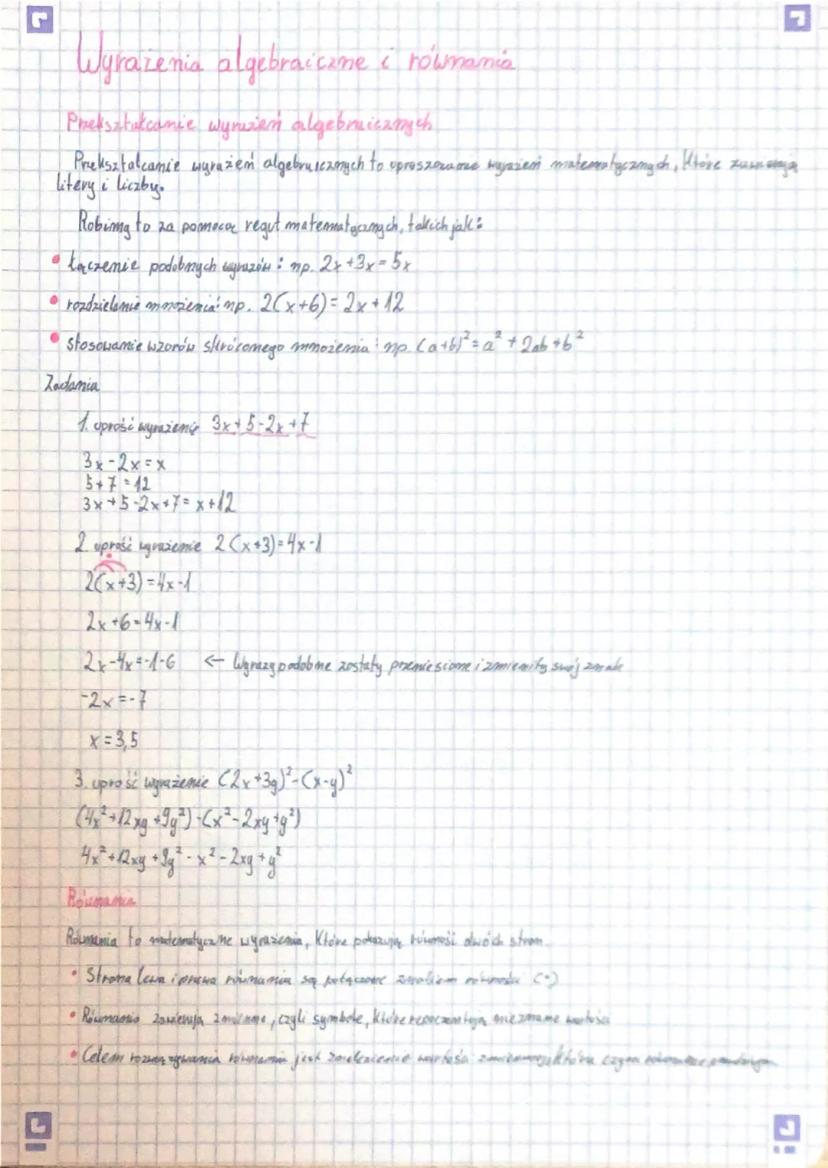 Wyrażenia algebraiczne i równania
Przekształcanie wyrażeń algebraicznych
Przekształcanie wyrażeń algebraicznych to upraszczanie wyrażeń matematycznych, które zawierają
litery i liczby.
Robimy to za pomocą reguł matematycznych, takich jak:
• łączenie podobnych wyrazów: np. 2x+3x=5x
• rozdzielanie mnożenia: np. 2(x+6)=2x+12
• stosowanie wzorów skróconego mnożenia: np (a+b)²=a²+2ab+b²
Zadania
1. uprość wyrażenie 3x+5-2x+7
3x-2x=x
5+7=12
3x+5-2x+7=x+12
2. uprość wyrażenie 2(x+3)=4x-1
2(x+3)=4x-1
2x+6=4x-1
2x-4x=-1-6 ← Wyrazy podobne zostały przeniesione i zmieniły swój znak
-2x=-7
x=3,5
3. uprość wyrażenie (2x+3y)²-(x-y)²
(4x²+12xy+9y²)-(x²-2xy+y²)
4x²+12xy+9y²-x²-2xy+y²
Równania
Równania to matematyczne wyrażenia, które pokazują równość dwóch stron.
• Strona lewa i prawa równania są połączone znakiem równości (=)
• Równania zawierają zmienne, czyli symbole, które reprezentują nieznane wartości
• Celem rozwiązywania równania jest znalezienie wartości zmiennej, która czyni równanie prawdziwym